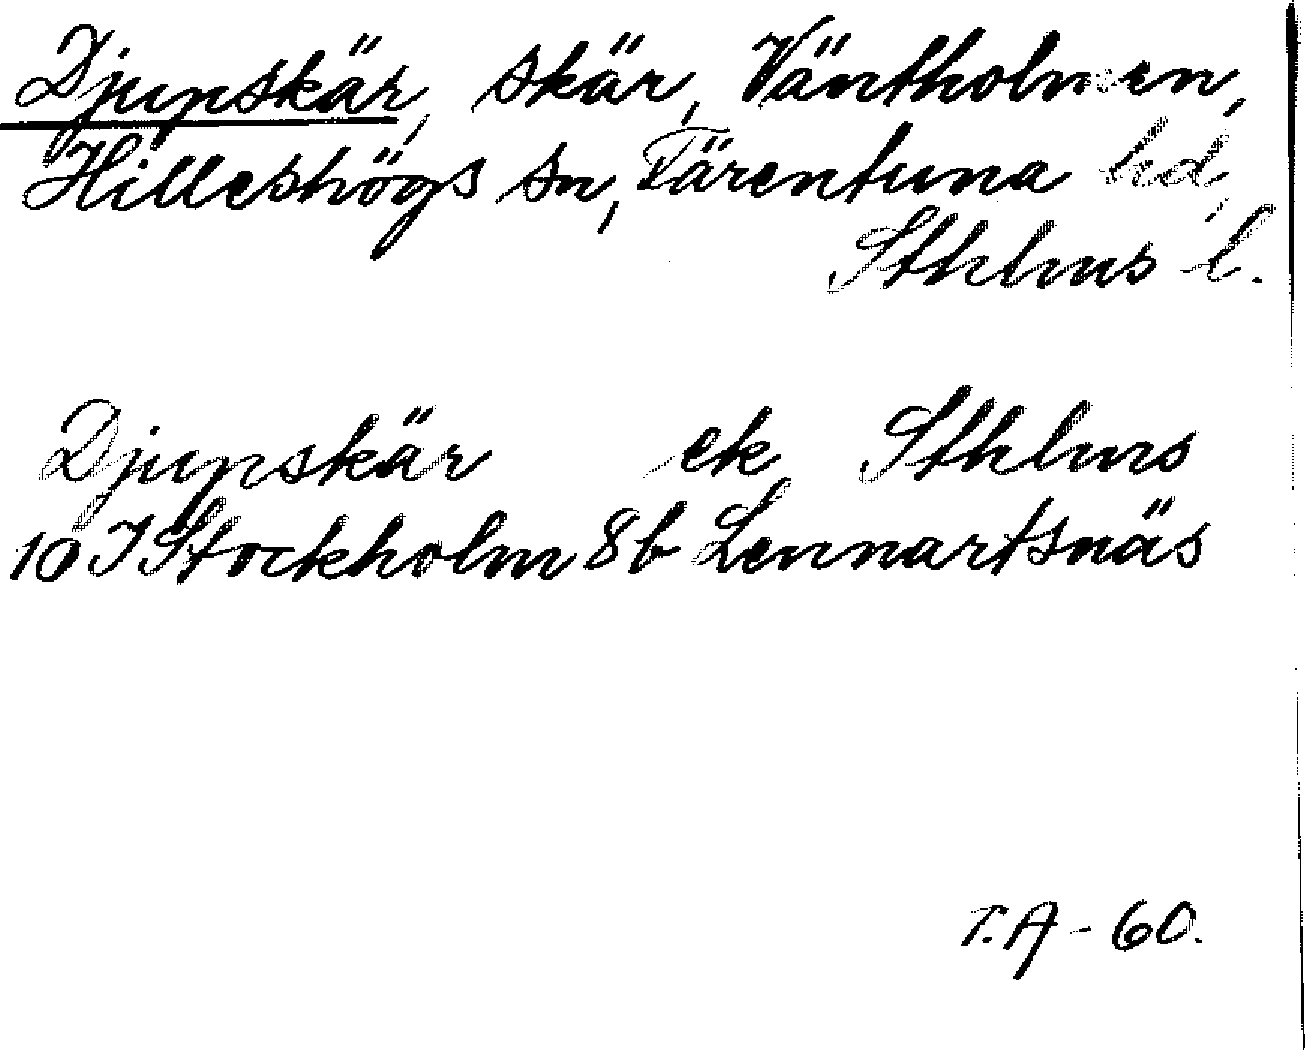 Djupskär, skär, Väntholmen,
Hilleshögs sn, Färentuna hd,
Sthlms l.
Djupskär ek Sthlms
10 I Stockholm 8b Lennartsnäs
T.A - 60.